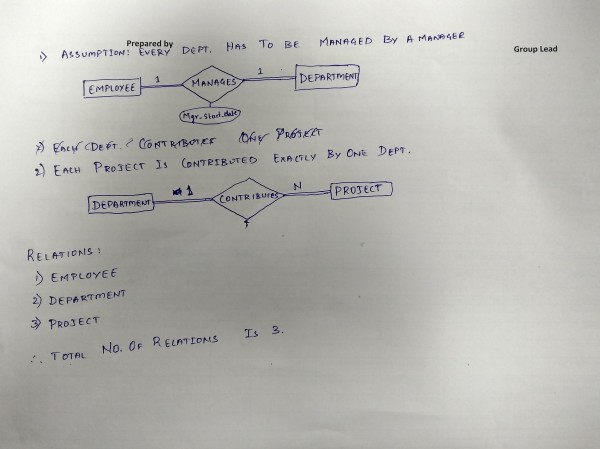 Prepared by
Group Lead
1) ASSUMPTION: EVERY DEPT. HAS TO BE MANAGED BY A MANAGER
EMPLOYEE 1 MANAGES 1 DEPARTMENT
Mgr. Start.date
2) EACH DEPT. CONTRIBUTES ONE PROJECT
2) EACH PROJECT IS CONTRIBUTED EXACTLY BY ONE DEPT.
DEPARTMENT 1 CONTRIBUTES N PROJECT
RELATIONS:
1) EMPLOYEE
2) DEPARTMENT
3) PROJECT
∴ TOTAL NO. OF RELATIONS IS 3.